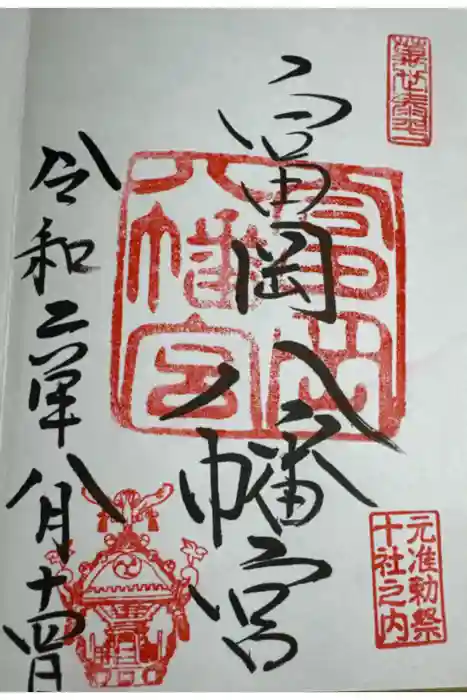 富岡八幡宮
富岡
八幡宮
元准勅祭
十社之内
令和二年八月十四日